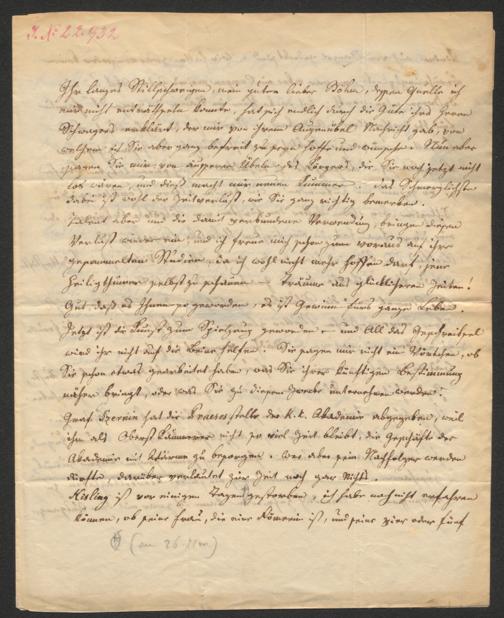 I.N. 22.932
Ihr langes Stillschweigen, mein guter lieber Böhm, dessen Quelle ich
mir nicht enträthseln konnte, hat sich endlich durch die Güte ihres Herrn
Schwagers erklärt, der mir von ihrem Augenübel Nachricht gab, von
welchem ich Sie aber ganz befreit zu sehen hoffe und wünsche. Nun aber
sagen Sie mir, von äusseren Übeln des Körpers, die Sie noch jetzt nicht
los wären, und dieß macht mir neuen Kummer. Das Schmerzlichste
dabei ist wohl der Zeitverlust, wie Sie ganz richtig bemerken.
Talent aber und die damit verbundene Verwendung, bringen diesen
Verlust wieder ein, und ich freue mich schon zum voraus auf ihre
gesammelten Studien, da ich wohl nicht mehr hoffen darf, jene
Heiligthümer selbst zu schauen – Träume aus glücklicheren Zeiten!
Gut, daß es Ihnen so geworden, es ist Gewinn fürs ganze Leben.
Jetzt ist die Kunst zum Spielzeug geworden – und All das Geschreibsel
wird ihr nicht auf die Beine helfen. Sie sagen mir nicht ein Wörtchen, ob
Sie schon etwas gearbeitet haben, das Sie ihrer künftigen Bestimmung
näher bringt, oder was Sie zu diesem Zwecke unternehmen werden.
Graf Czernin hat die Praesesstelle der k.k. Akademie abgegeben, weil
ihm als Oberst Kämmerer nicht so viel Zeit bleibt, die Geschäfte der
Akademie mit Wärme zu besorgen. Wer aber sein Nachfolger werden
dürfte, darüber verlautet zur Zeit noch gar Nichts.
Kisling ist vor einigen Tagen gestorben, ich habe noch nicht erfahren
können, ob seine Frau, die eine Römerin ist, und seine vier oder fünf
(am 26.